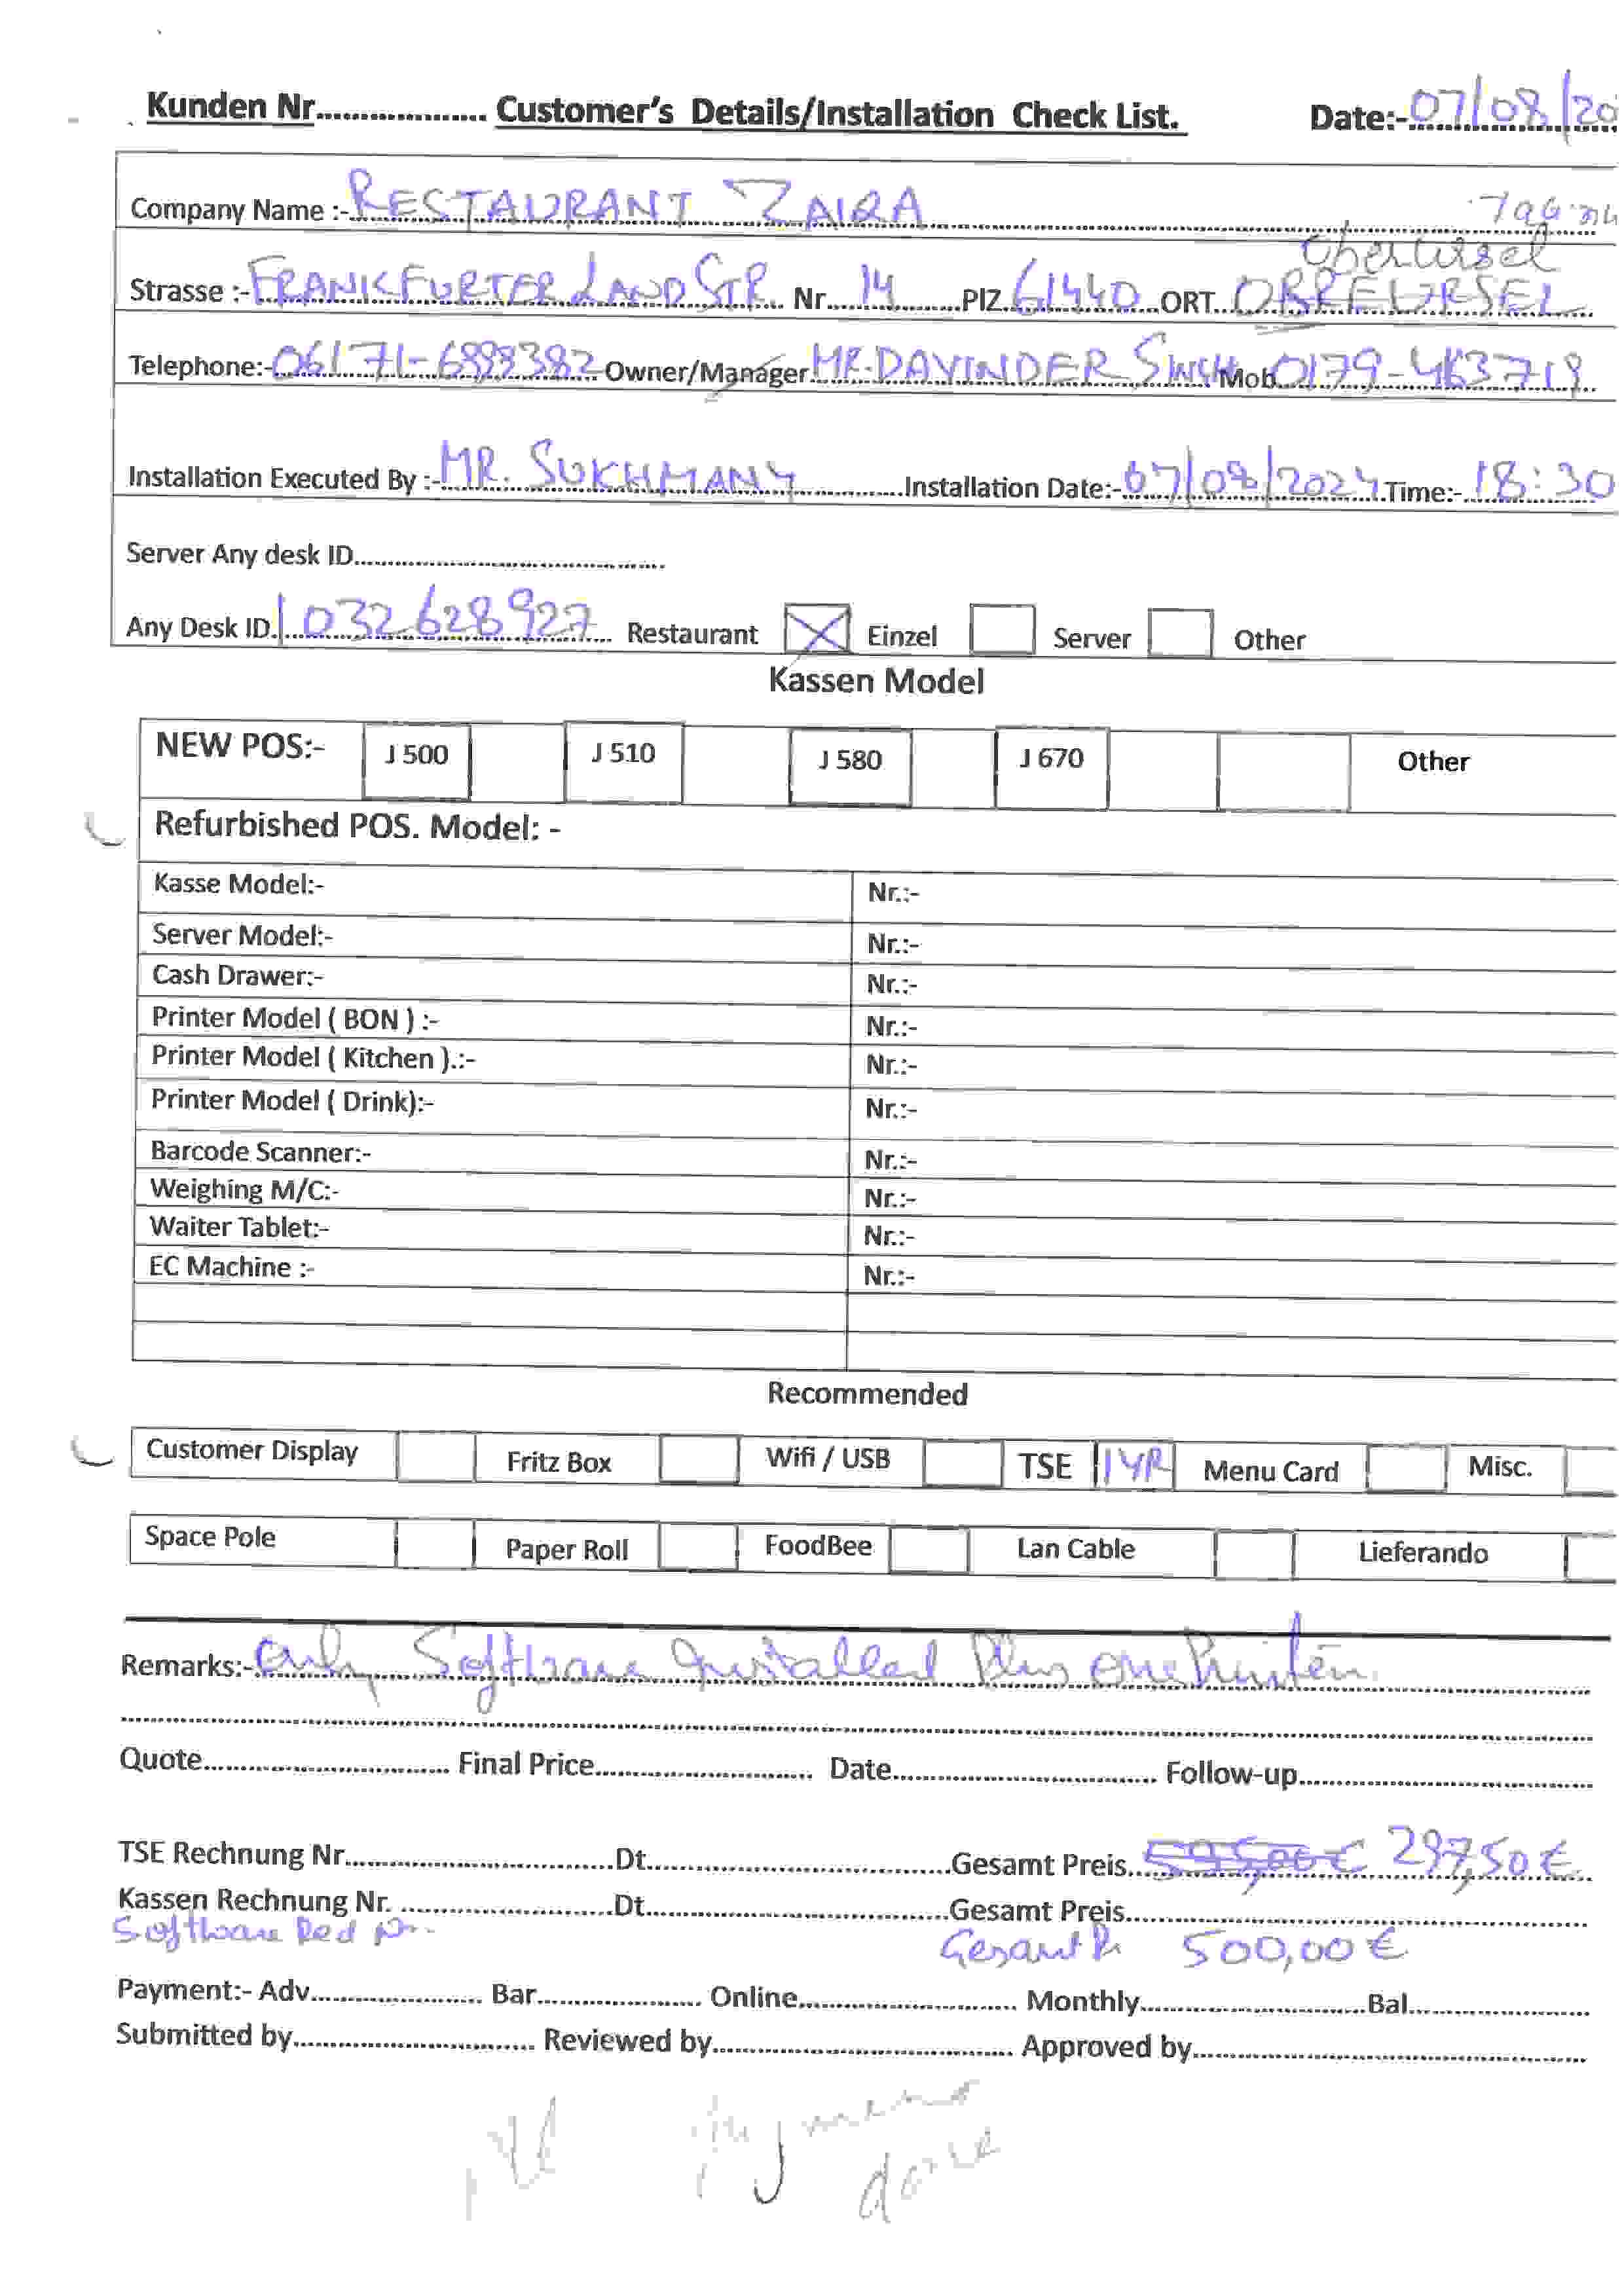 Kunden Nr.................. Customer's Details/Installation Check List. Date:-07/08/20
Company Name :-RESTAURANT ZAIQA
Oberursel
Strasse :-FRANKFURTER LANDSTR. Nr. 14 PlZ 61440 ORT. OBREURSEL
Telephone:-06171-6888382 Owner/Manager MR. DAVINDER SINGH Mob 0179-463719
Installation Executed By :-MR. SUKHMANY Installation Date:-07/08/2024 Time:- 18:30
Server Any desk ID
Any Desk ID. 1032628927 Restaurant Einzel Server Other
Kassen Model
NEW POS:- J 500 J 510 J 580 J 670 Other
Refurbished POS. Model: -
Kasse Model:- Nr.:-
Server Model:- Nr.:-
Cash Drawer:- Nr.:-
Printer Model ( BON ) :- Nr.:-
Printer Model ( Kitchen ).:- Nr.:-
Printer Model ( Drink):- Nr.:-
Barcode Scanner:- Nr.:-
Weighing M/C:- Nr.:-
Waiter Tablet:- Nr.:-
EC Machine :- Nr.:-
Recommended
Customer Display Fritz Box Wifi / USB TSE 1YR Menu Card Misc.
Space Pole Paper Roll FoodBee Lan Cable Lieferando
Remarks:-Only Software Installed Plus one Printer
Quote Final Price Date Follow-up
TSE Rechnung Nr. Dt. Gesamt Preis. 595,00€ 297,50€
Kassen Rechnung Nr. Dt. Gesamt Preis.
Software Gesamt 500,00€
Payment:- Adv. Bar. Online. Monthly. Bal.
Submitted by. Reviewed by. Approved by.
All Payment
done